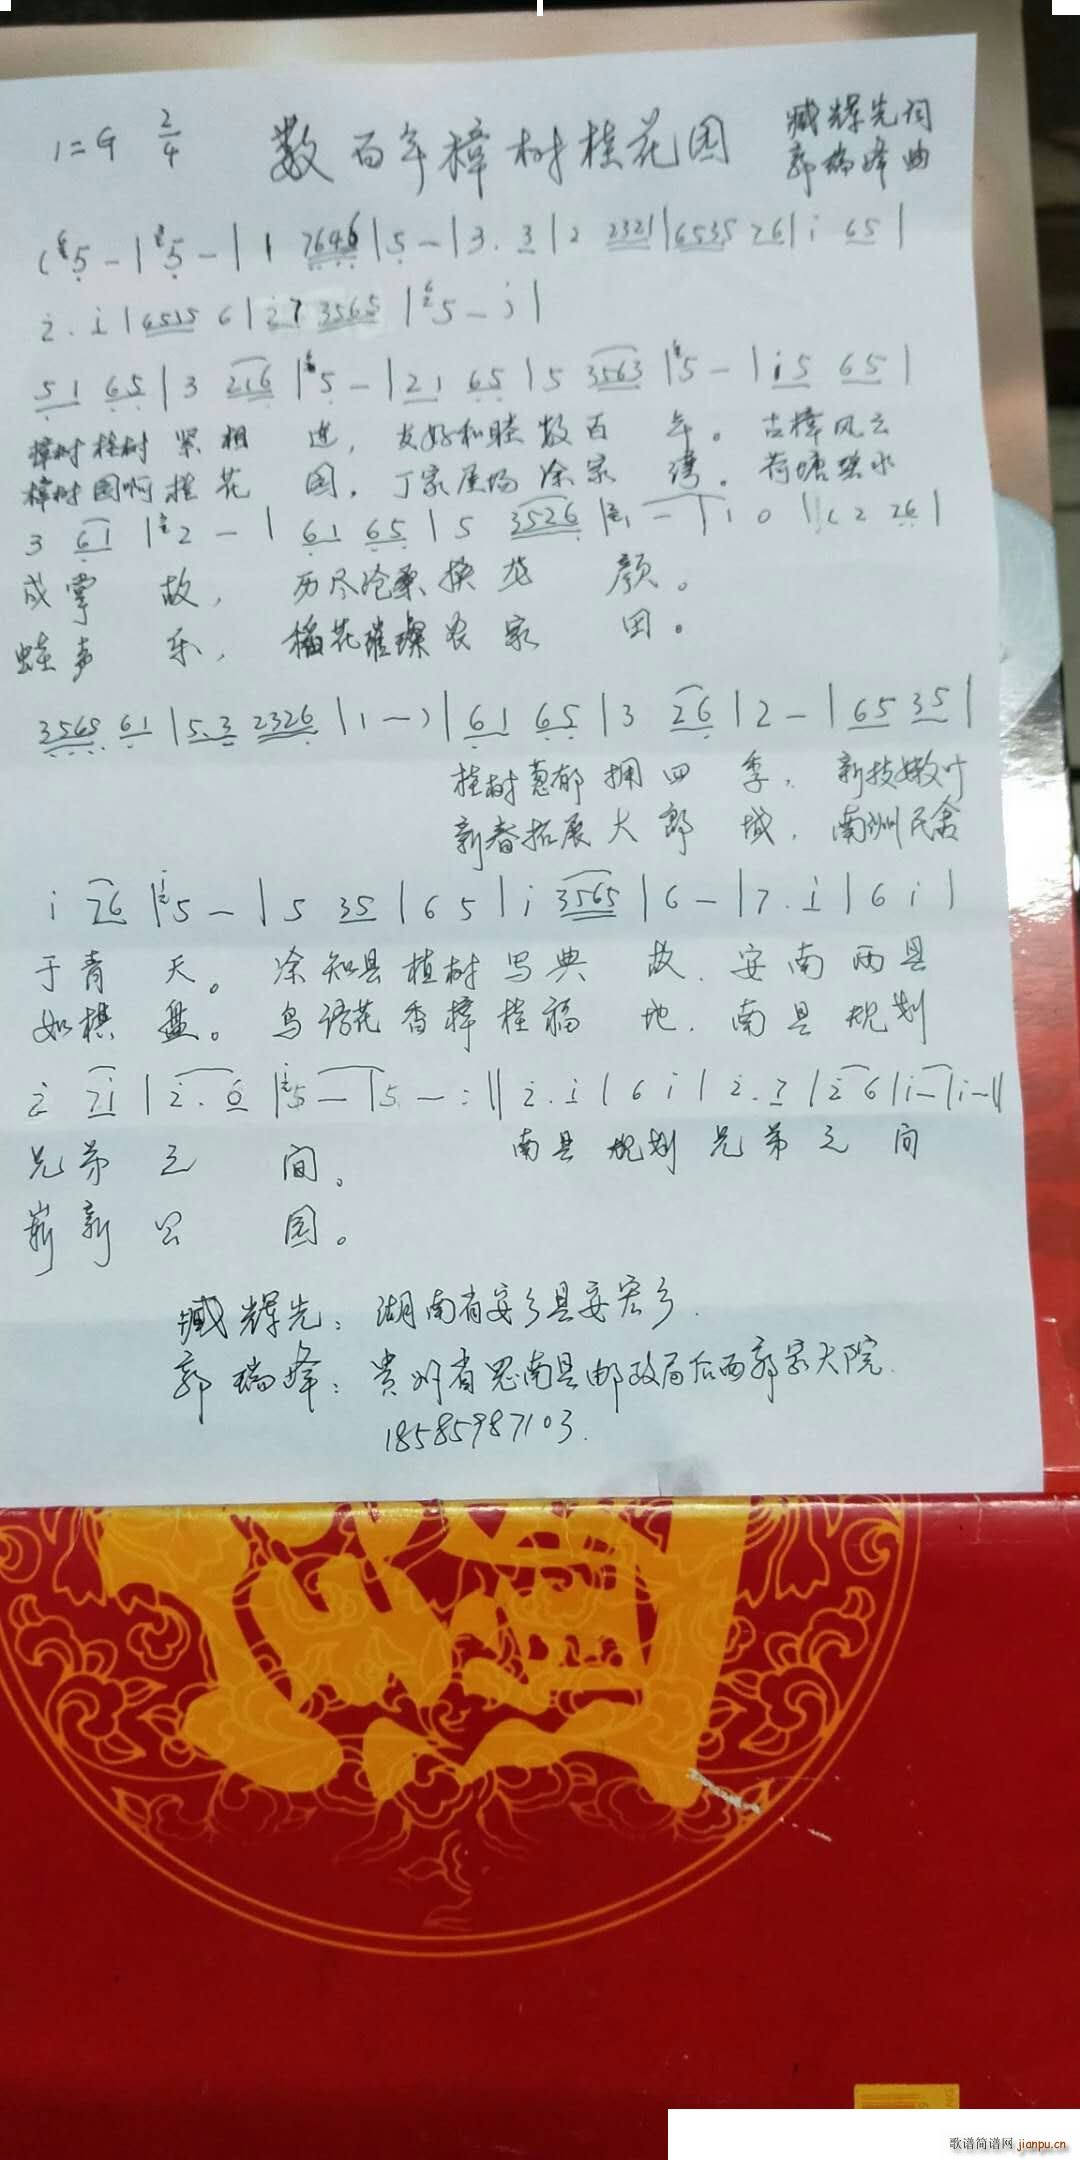 1=G 2/4 数百年樟树桂花园 臧辉先词
郭瑞峰 曲
(5 - | 5 - | 1 7646 | 5 - | 3. 3 | 2 2321 | 6535 26 | i 65 |
2. i | 6535 6 | 27 3565 | 5 - ) |
51 65 | 3 216 | 5 - | 21 65 | 5 3563 | 5 - | i5 65 |
樟树桂树 紧相 连, 友好和睦数百 年。 古樟风云
樟树园啊桂花 园, 丁家屋场涂家 湾。 荷塘碧水
3 61 | 2 - | 61 65 | 5 3526 | 1 - | 1 0 | (2 26 |
成掌 故, 历尽沧桑换龙 颜。
蛙声 乐, 稻花璀璨农家 田。
3565 61 | 5.3 2326 | 1 - ) | 61 65 | 3 26 | 2 - | 65 35 |
桂树葱郁 拥四 季, 新枝嫩叶
新春拓展大郡 城, 南洲民舍
i 76 | 5 - | 5 35 | 6 5 | i 3565 | 6 - | 7. i | 6 i |
于青 天。 涂知县植树写典 故. 安南两县
如棋 盘。 鸟语花香樟桂福 地. 南县规划
2 7i | 2. 6 | 5 - | 5 - :‖ 2. i | 6 i | 2. 7 | 2 6 | i - | i - ‖
兄弟 之 间。 南县规划兄弟之 间
崭新 公 园。
臧辉先: 湖南省安乡县安宏乡.
郭瑞峰: 贵州省思南县邮政局后面郭家大院.
18585987103.
歌谱简谱网 jianpu.cn